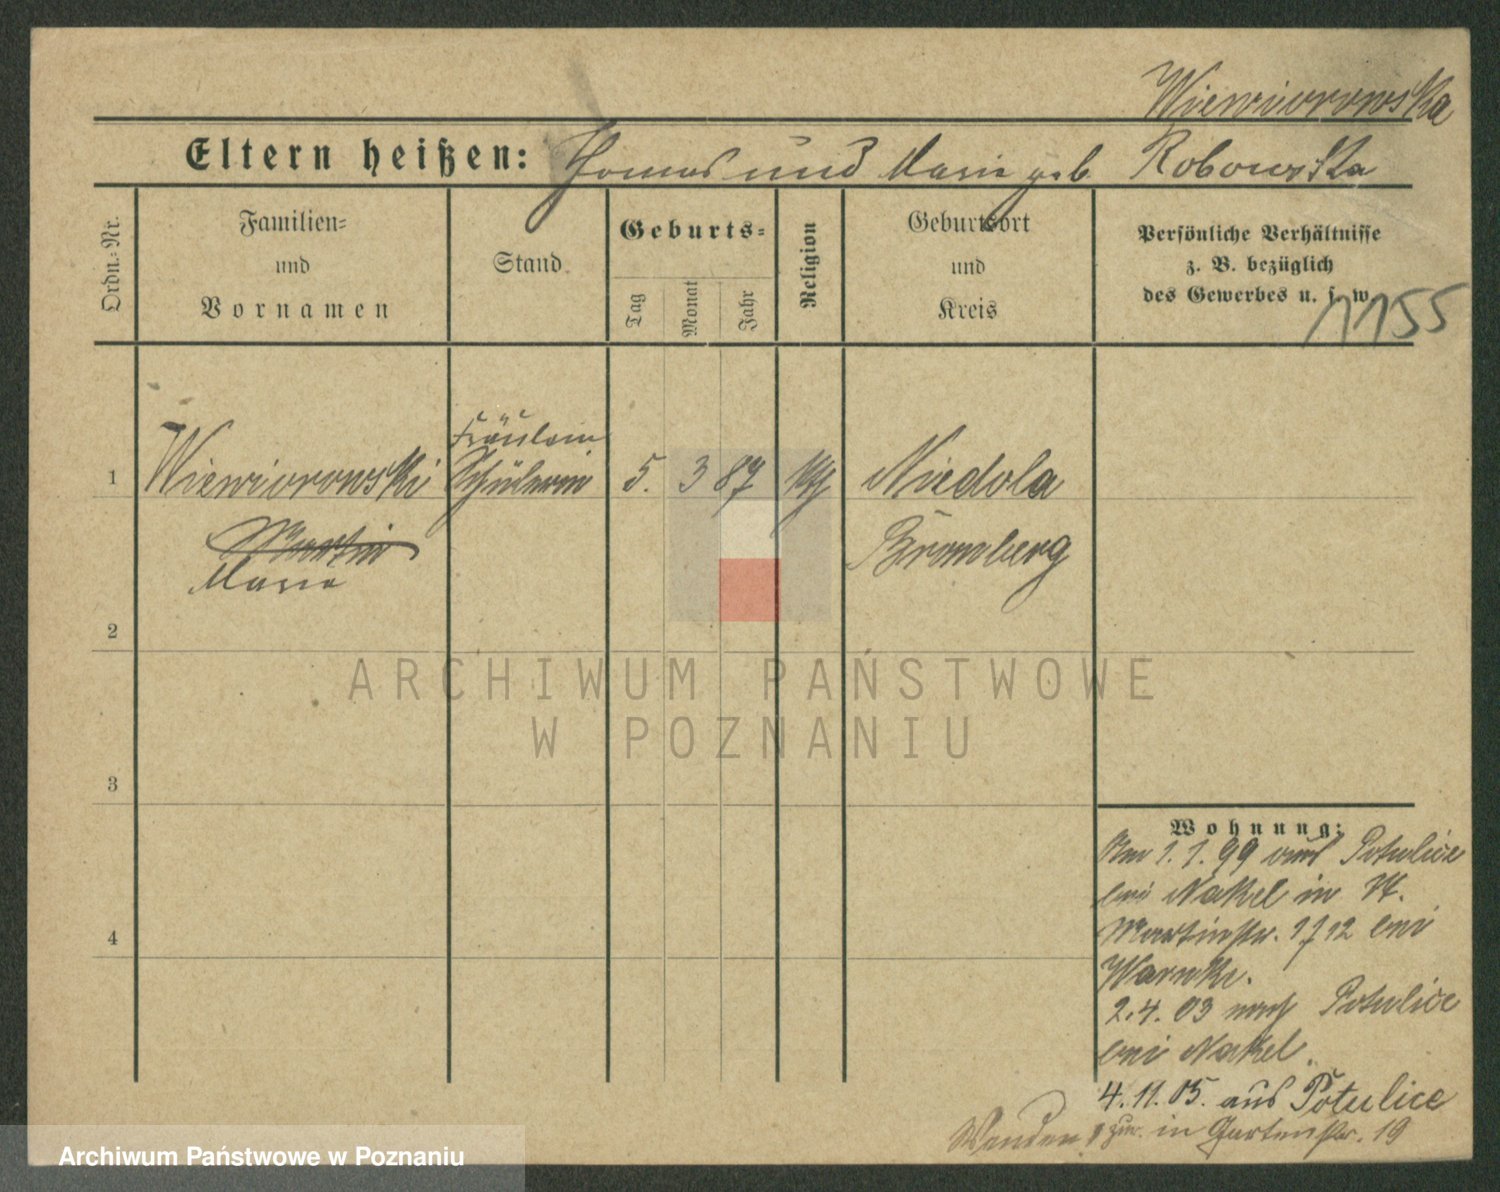 Wiewiorowska
Eltern heißen: Thomas und Marie geb. Robowska
Ordn.-Nr.
Familien-
und
Vornamen
Stand
Geburts-
Tag
Monat
Jahr
Religion
Geburtsort
und
Kreis
Persönliche Verhältnisse
z. B. bezüglich
des Gewerbes u. s. w.
11155
Fräulein
1 Wiewiorowski Schülerin 5. 3 87 kth Niedola
Martin
Bromberg
Marie
2
ARCHIWUM PAŃSTWOWE
W POZNANIU
3
Wohnung:
Am 1.1.99 aus Potulice
bei Nakel in St.
Martinstr. 17 12 bei
Warnke.
2.4.03 nach Potulice
bei Nakel.
4
4.11.05. aus Potulice
Wenden! zur. in Gartenstr. 19
Archiwum Państwowe w Poznaniu